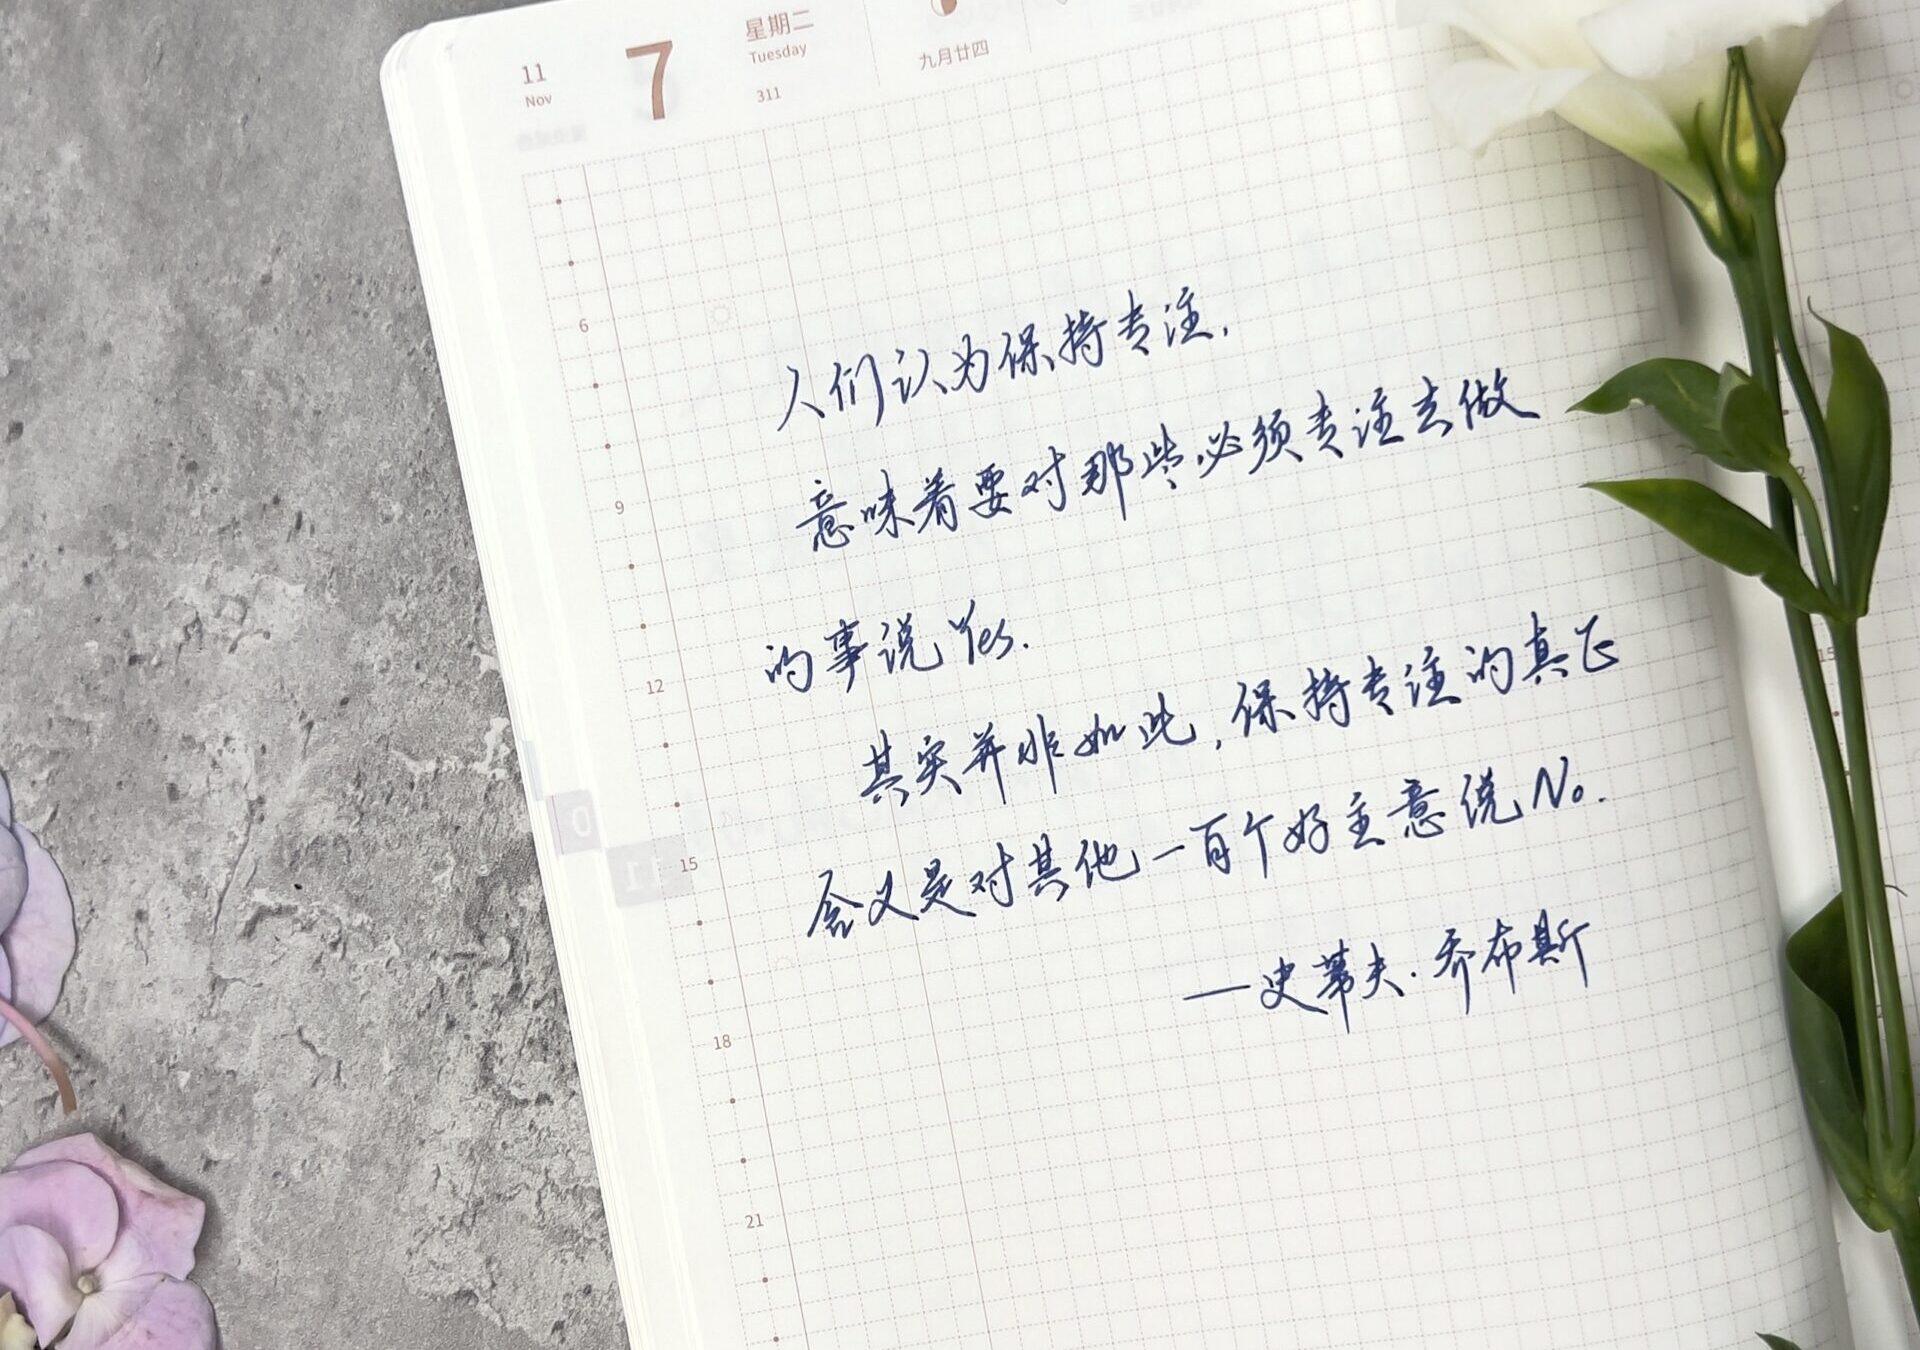 11
Nov
7
星期二
Tuesday
311
九月廿四
人们认为保持专注,
意味着要对那些必须专注去做
的事说Yes.
其实并非如此,保持专注的真正
含义是对其他一百个好主意说No.
—史蒂夫·乔布斯
6
9
12
15
18
21
0
11
15